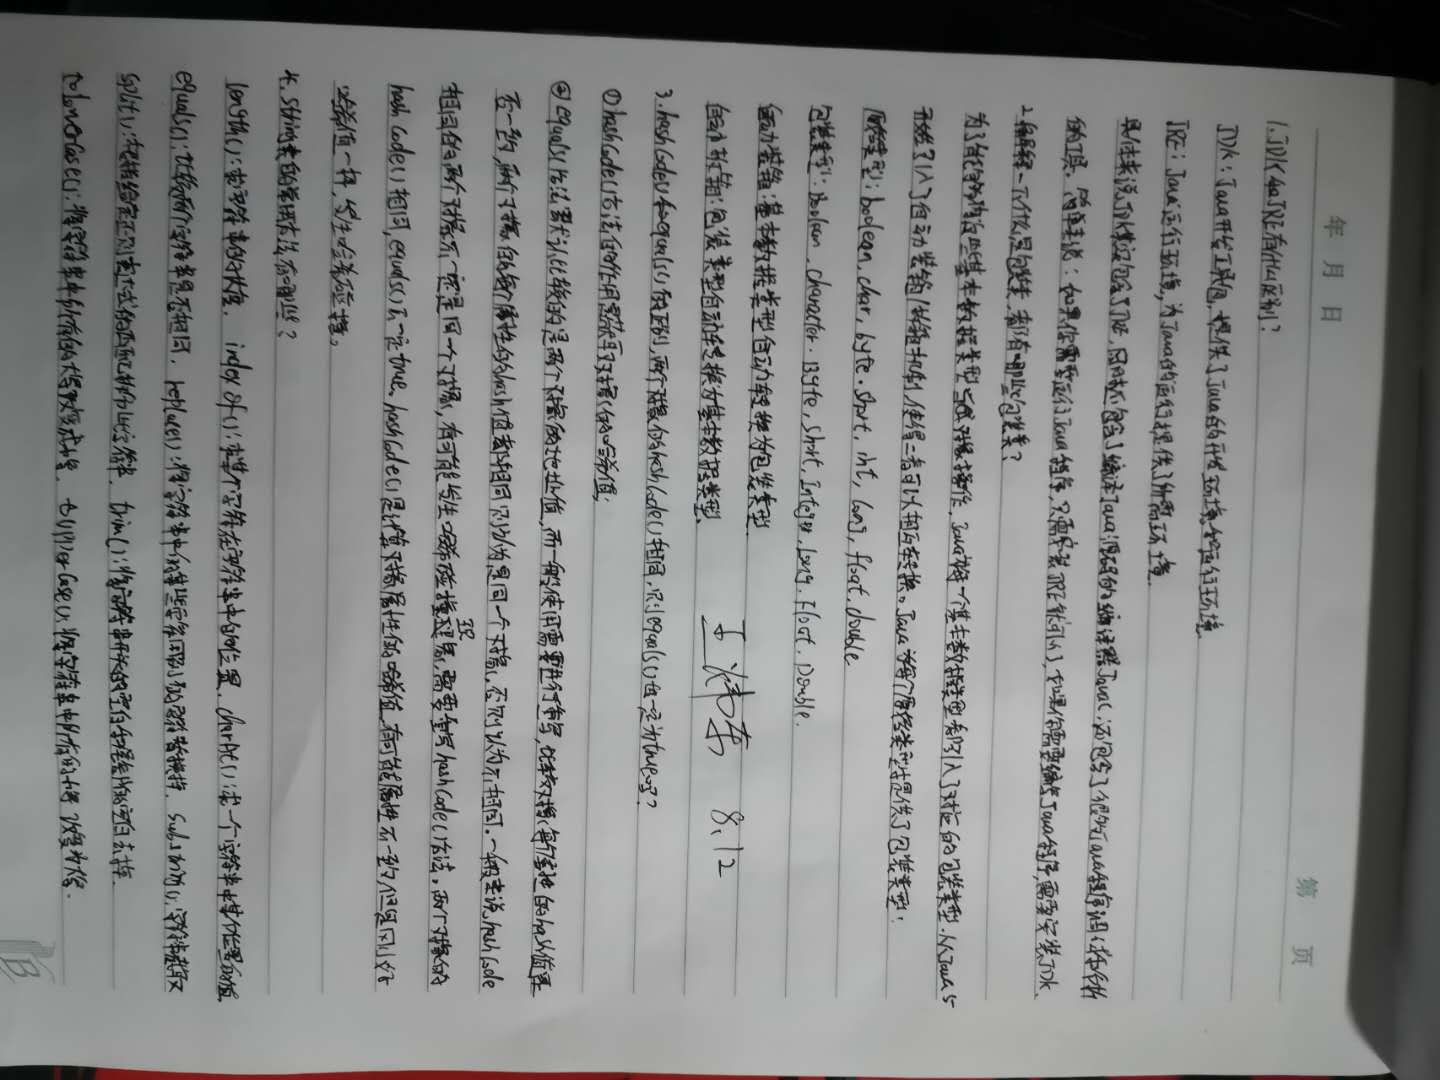 年 月 日
第 页
1.JDK和JRE有什么区别?
JDK:Java开发工具包,提供了Java的开发环境和运行环境
JRE:Java运行环境,为Java的运行提供了所需环境
具体来说JDK其实包含了JRE,同时还包含了编译Java源码的编译器Javac,还包含了很多Java程序调试和分析
的工具。简单来说:如果你需要运行Java程序,只需安装JRE就可以了,如果你需要编写Java程序,需要安装JDK.
2.解释一下什么是包装类,都有哪些包装类?
为了能够将这些基本数据类型当成对象操作,Java为每一个基本数据类型都引入了对应的包装类型,从Java 5
开始引入了自动装箱/拆箱机制,使得二者可以相互转换。Java为每个原始类型提供了包装类型:
原始类型:boolean,char,byte,short,int,long,float,double
包装类型:Boolean,Character,Byte,Short,Integer,Long,Float,Double.
自动装箱:基本数据类型自动转换为包装类型
自动拆箱:包装类型自动转换为基本数据类型.
3.hashCode和equals()的区别,两个对象的hashCode()相同,则equals()也一定为true吗?
①hashCode()方法的作用是获取对象的哈希值;
②equals()方法默认比较的是两个对象的地址值,而一般使用需要进行重写,比较对象每个属性的hash值是
否一致,两个对象的每个属性的hash值都相同则认为是同一个对象,否则认为不相同。一般来说,hashCode
相同但两个对象不一定是同一个对象,有可能发生哈希碰撞现象,需要重写hashCode()方法。两个对象的
hashCode()相同,equals()不一定true,hashCode()是计算对象属性的哈希值,有可能属性不一致,但是刚好
哈希值一样,发生哈希碰撞。
4.String类的常用方法有哪些?
length():求字符串的长度. indexOf():求某个字符在字符串中的位置. charAt():求一个字符串中某个位置的值.
equals():比较两个字符串是否相同. replace():将字符串中的某些字符用别的字符替换掉. substring():字符串截取
split():根据给定正则表达式的匹配拆分此字符串. trim():将字符串开头的空白和结尾的空白去掉.
toLowerCase():将字符串中所有的大写改变成小写. toUpperCase():将字符串中所有的小写改变为大写.
8.12